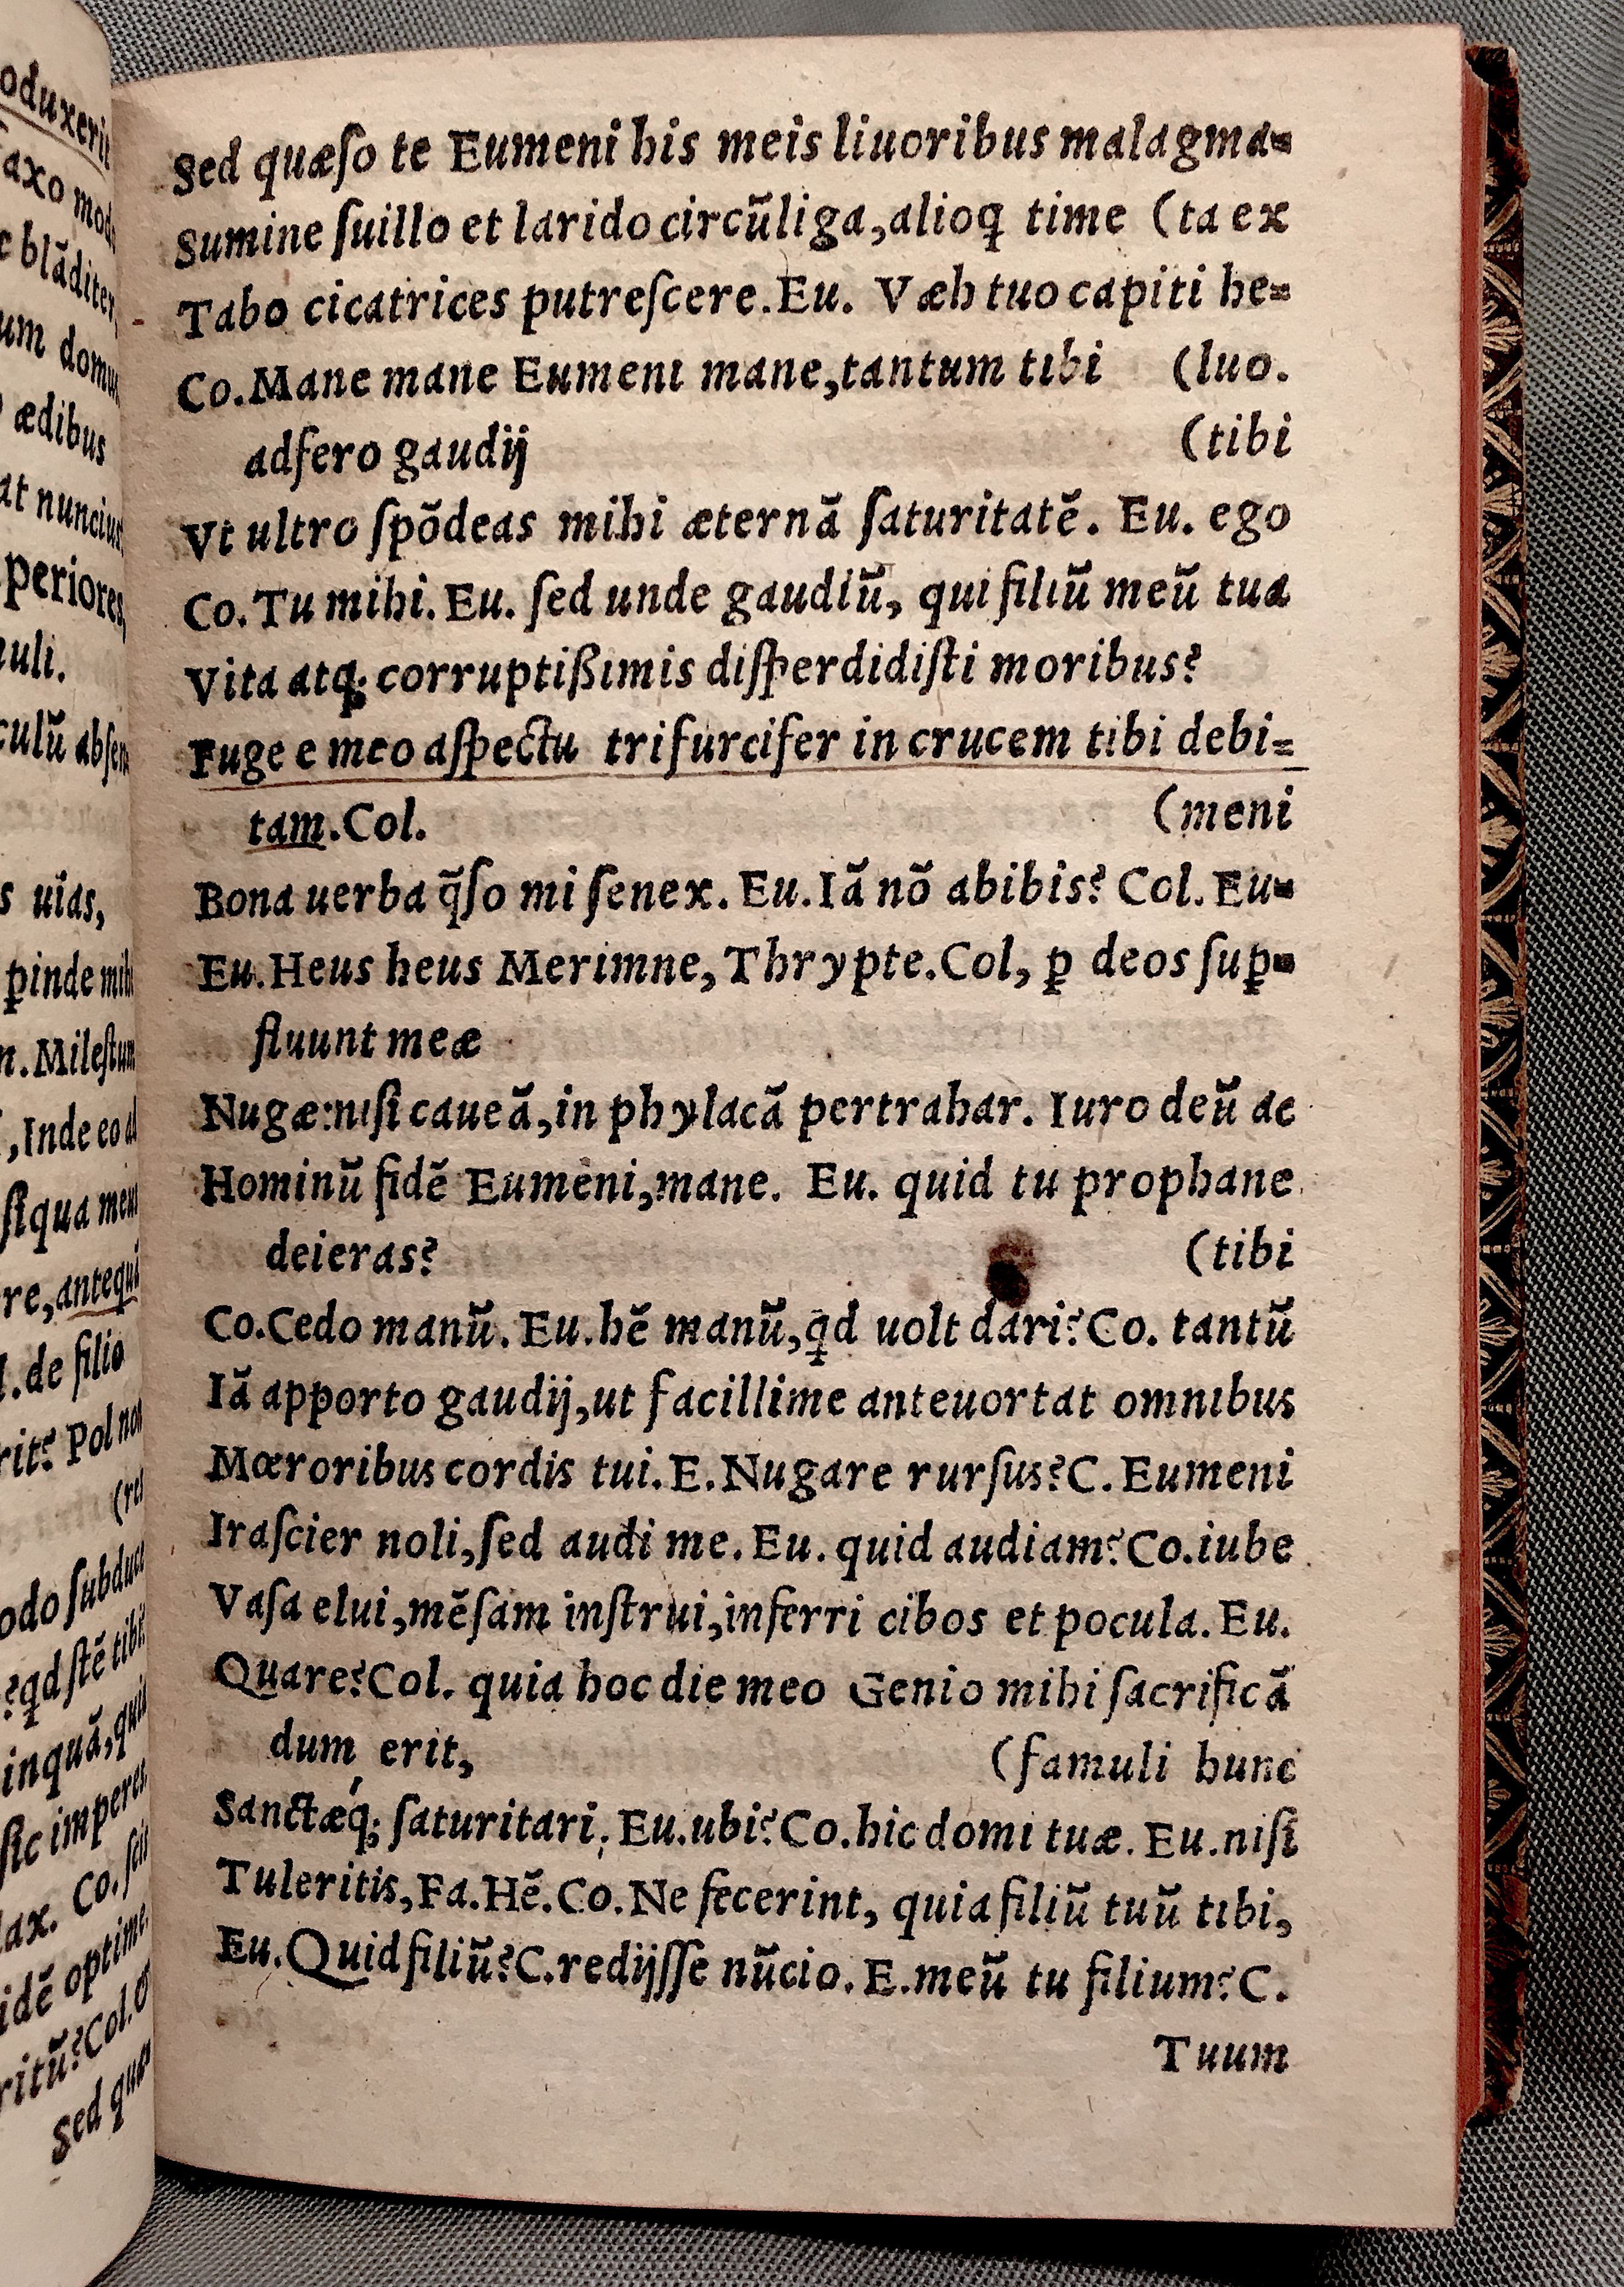 oduxerit
axo modo
c blāditer,
um domum
ædibus
at nuncius
periores,
uli.
culū absen
s uias,
ꝑinde mihi
n. Milestum
,Inde eo ad
siqua meus
re, antequā
de filio
rit? Pol non
(res
odo subduce
?qd stē tibi?
inquā, quia
sic imperes
ax. Co. scit
idē optime.
ritū? Col. &
Sed quæs
Sed quæſo te Eumeni his meis liuoribus malagma-
Sumine ſuillo et larido circūliga, alioq̃ time (ta ex
Tabo cicatrices putreſcere. Eu. Væh tuo capiti he-
Co. Mane mane Eumeni mane, tantum tibi (luo.
adfero gaudij (tibi
Vt ultro ſpōdeas mihi æternā ſaturitatē. Eu. ego
Co. Tu mihi. Eu. ſed unde gaudiū, qui filiū meū tua
Vita atq; corruptißimis diſperdidiſti moribus?
Fuge e meo aſpectu trifurcifer in crucem tibi debi-
tam. Col. (meni
Bona uerba q̄ſo mi ſenex. Eu. Iā nō abibis? Col. Eu-
Eu. Heus heus Merimne, Thrypte. Col, ꝑ deos ſuꝑ-
fluunt meæ
Nugæ: niſi caueā, in phylacā pertrahar. Iuro deū ac
Hominū fidē Eumeni, mane. Eu. quid tu prophane
deieras? (tibi
Co. Cedo manū. Eu. hē manū, qd uolt dari? Co. tantū
Iā apporto gaudij, ut facillime anteuortat omnibus
Mœroribus cordis tui. E. Nugare rurſus? C. Eumeni
Iraſcier noli, ſed audi me. Eu. quid audiam? Co. iube
Vaſa elui, mēſam inſtrui, inferri cibos et pocula. Eu.
Quare? Col. quia hoc die meo Genio mihi ſacrificā
dum erit, (famuli hunc
Sanctæq́; ſaturitari, Eu. ubi? Co. hic domi tuæ. Eu. niſi
Tuleritis, Fa. Hē. Co. Ne fecerint, quia filiū tuū tibi,
Eu. Quid filiū? C. redijſſe nūcio. E. meū tu filium? C.
Tuum